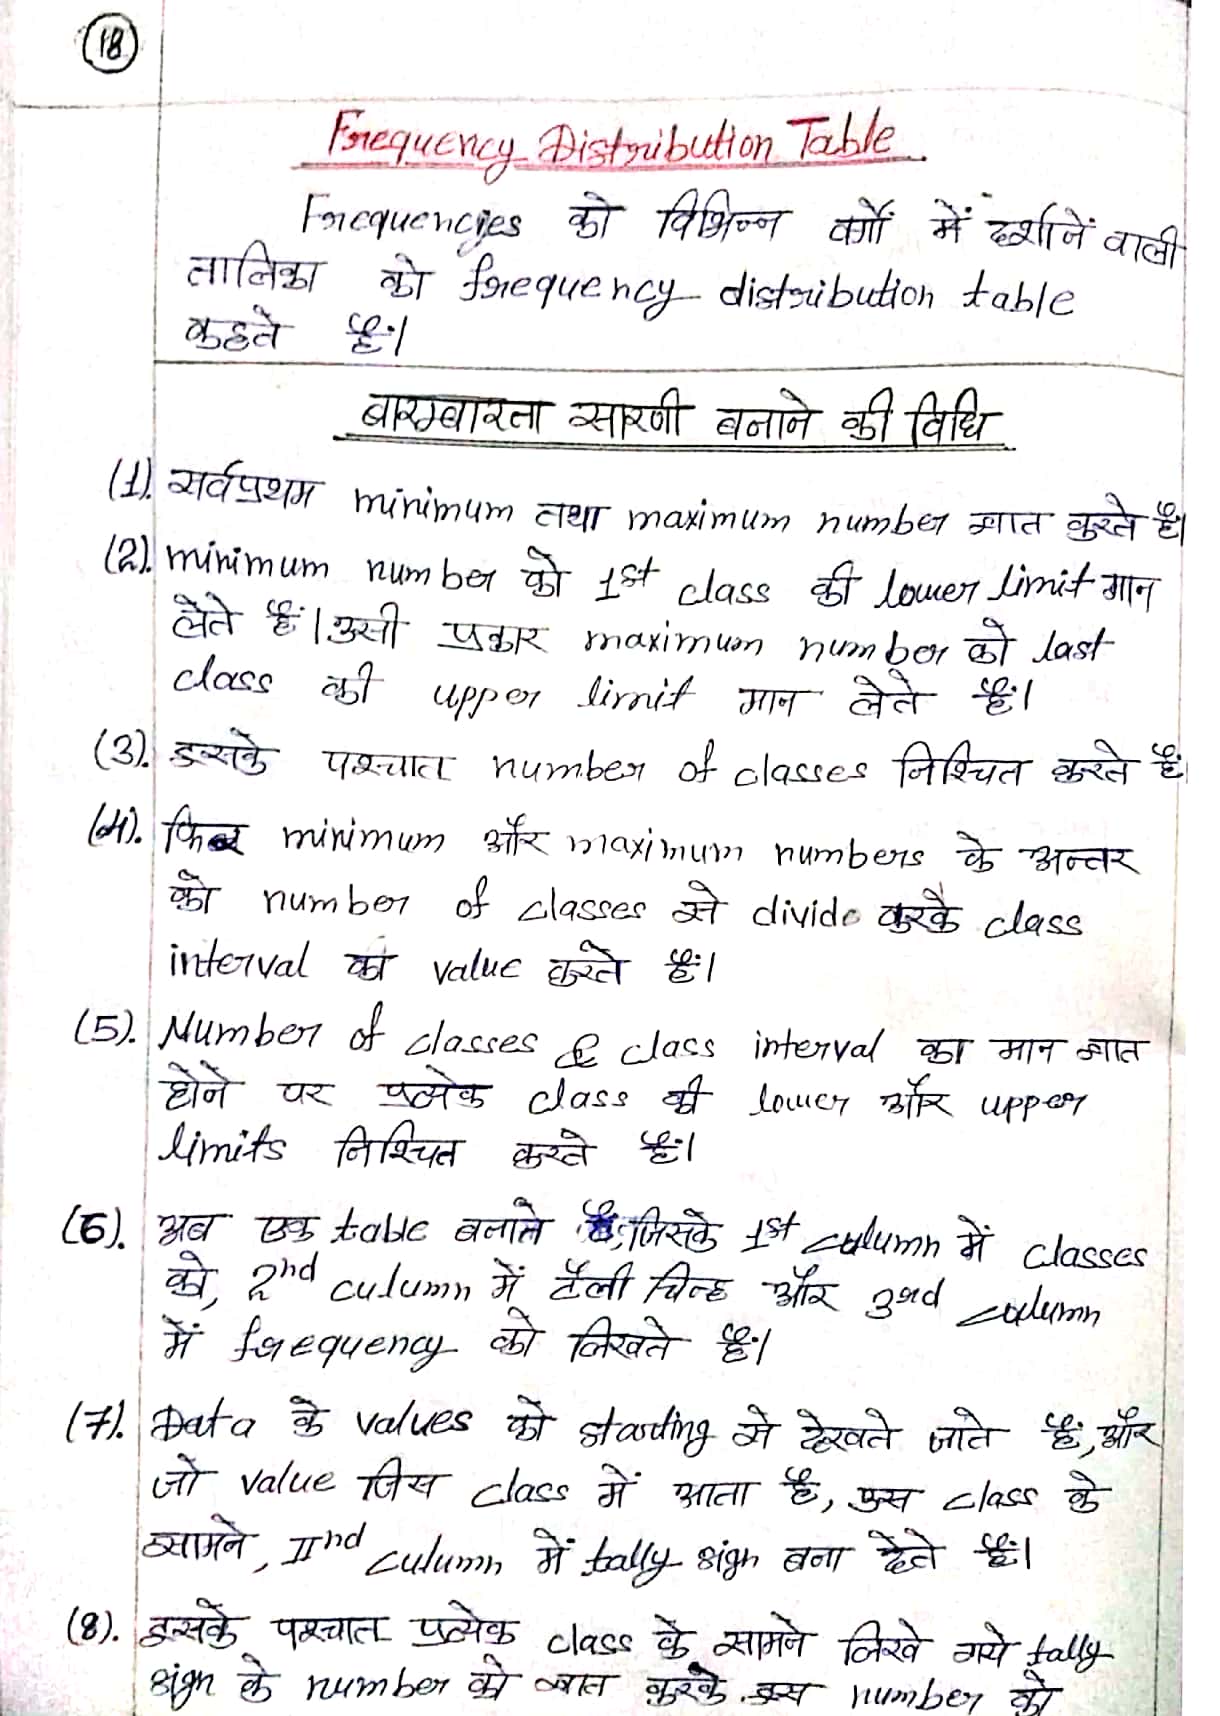 18
Frequency Distribution Table
Frequencies को विभिन्न वर्गों में दर्शाने वाली
तालिका को frequency distribution table
कहते हैं।
बारम्बारता सारणी बनाने की विधि
(1). सर्वप्रथम minimum तथा maximum number ज्ञात करते है।
(2). minimum number को 1st class की lower limit मान
लेते हैं। उसी प्रकार maximum number को last
class की upper limit मान लेते हैं।
(3). इसके पश्चात number of classes निश्चित करते हैं।
(4). फिर minimum और maximum numbers के अन्तर
को number of classes से divide करके class
interval का value करते हैं।
(5). Number of classes & class interval का मान ज्ञात
होने पर प्रत्येक class की lower और upper
limits निश्चित करते हैं।
(6). अब एक table बनाते हैं, जिसके 1st culumn में classes
को, 2nd culumn में टैली चिन्ह और 3rd culumn
में frequency को लिखते हैं।
(7). Data के values को starting से देखते जाते हैं, और
जो value जिस class में आता है, उस class के
सामने, IInd culumn में tally sign बना देते हैं।
(8). इसके पश्चात प्रत्येक class के सामने लिखे गये tally
sign के number को ज्ञात करके इस number को